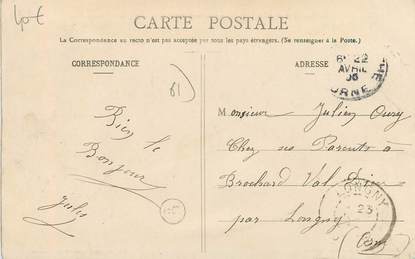 CARTE POSTALE
La Correspondance au recto n'est pas acceptée par tous les pays étrangers. (Se renseigner à la Poste.)
CORRESPONDANCE
ADRESSE
61
Bien le
Bonjour
Jules
Monsieur Julien
Chez ses Parents à
Brochard Val
par Longny
(Orne)
22
AVRIL
06
ORNE
LONGNY
23